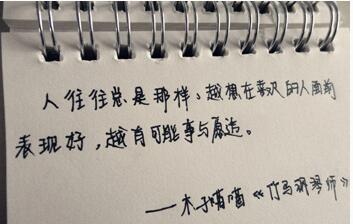 人往往总是那样、越想在喜欢的人面前
表现好，越有可能事与愿违。
——木子喃喃《竹马钢琴师》